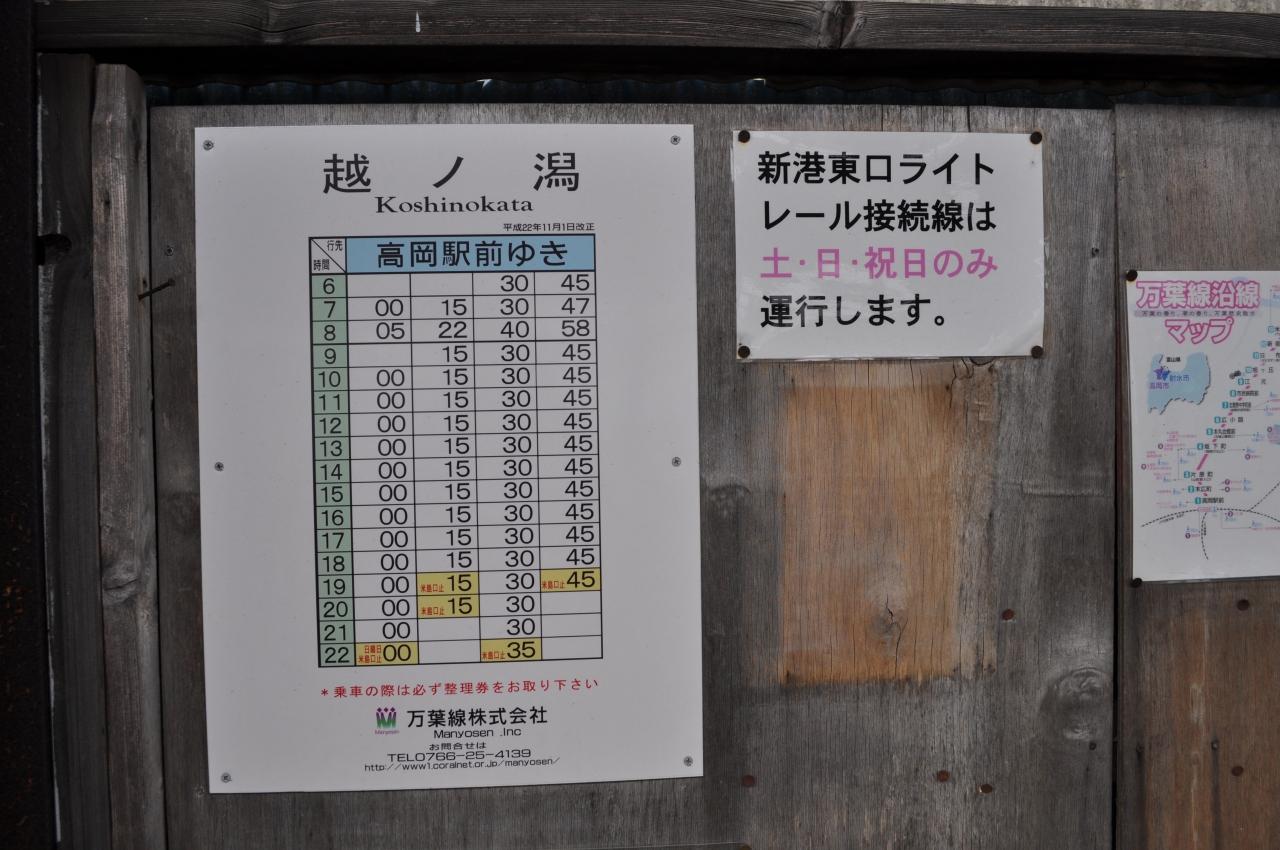 越ノ潟
Koshinokata
平成22年11月1日改正
行先
時間
高岡駅前ゆき
6 30 45
7 00 15 30 47
8 05 22 40 58
9 15 30 45
10 00 15 30 45
11 00 15 30 45
12 00 15 30 45
13 00 15 30 45
14 00 15 30 45
15 00 15 30 45
16 00 15 30 45
17 00 15 30 45
18 00 15 30 45
19 00 米島口止15 30 米島口止45
20 00 米島口止15 30
21 00 30
22 日曜日米島口止00 米島口止35
*乗車の際は必ず整理券をお取り下さい
Manyosen
万葉線株式会社
Manyosen .Inc
お問合せは
TEL0766-25-4139
http://www1.coralnet.or.jp/manyosen/
新港東口ライト
レール接続線は
土・日・祝日のみ
運行します。
万葉線沿線
マップ
富山県
射水市
高岡市
坂下町
片原町
末広町
高岡駅前